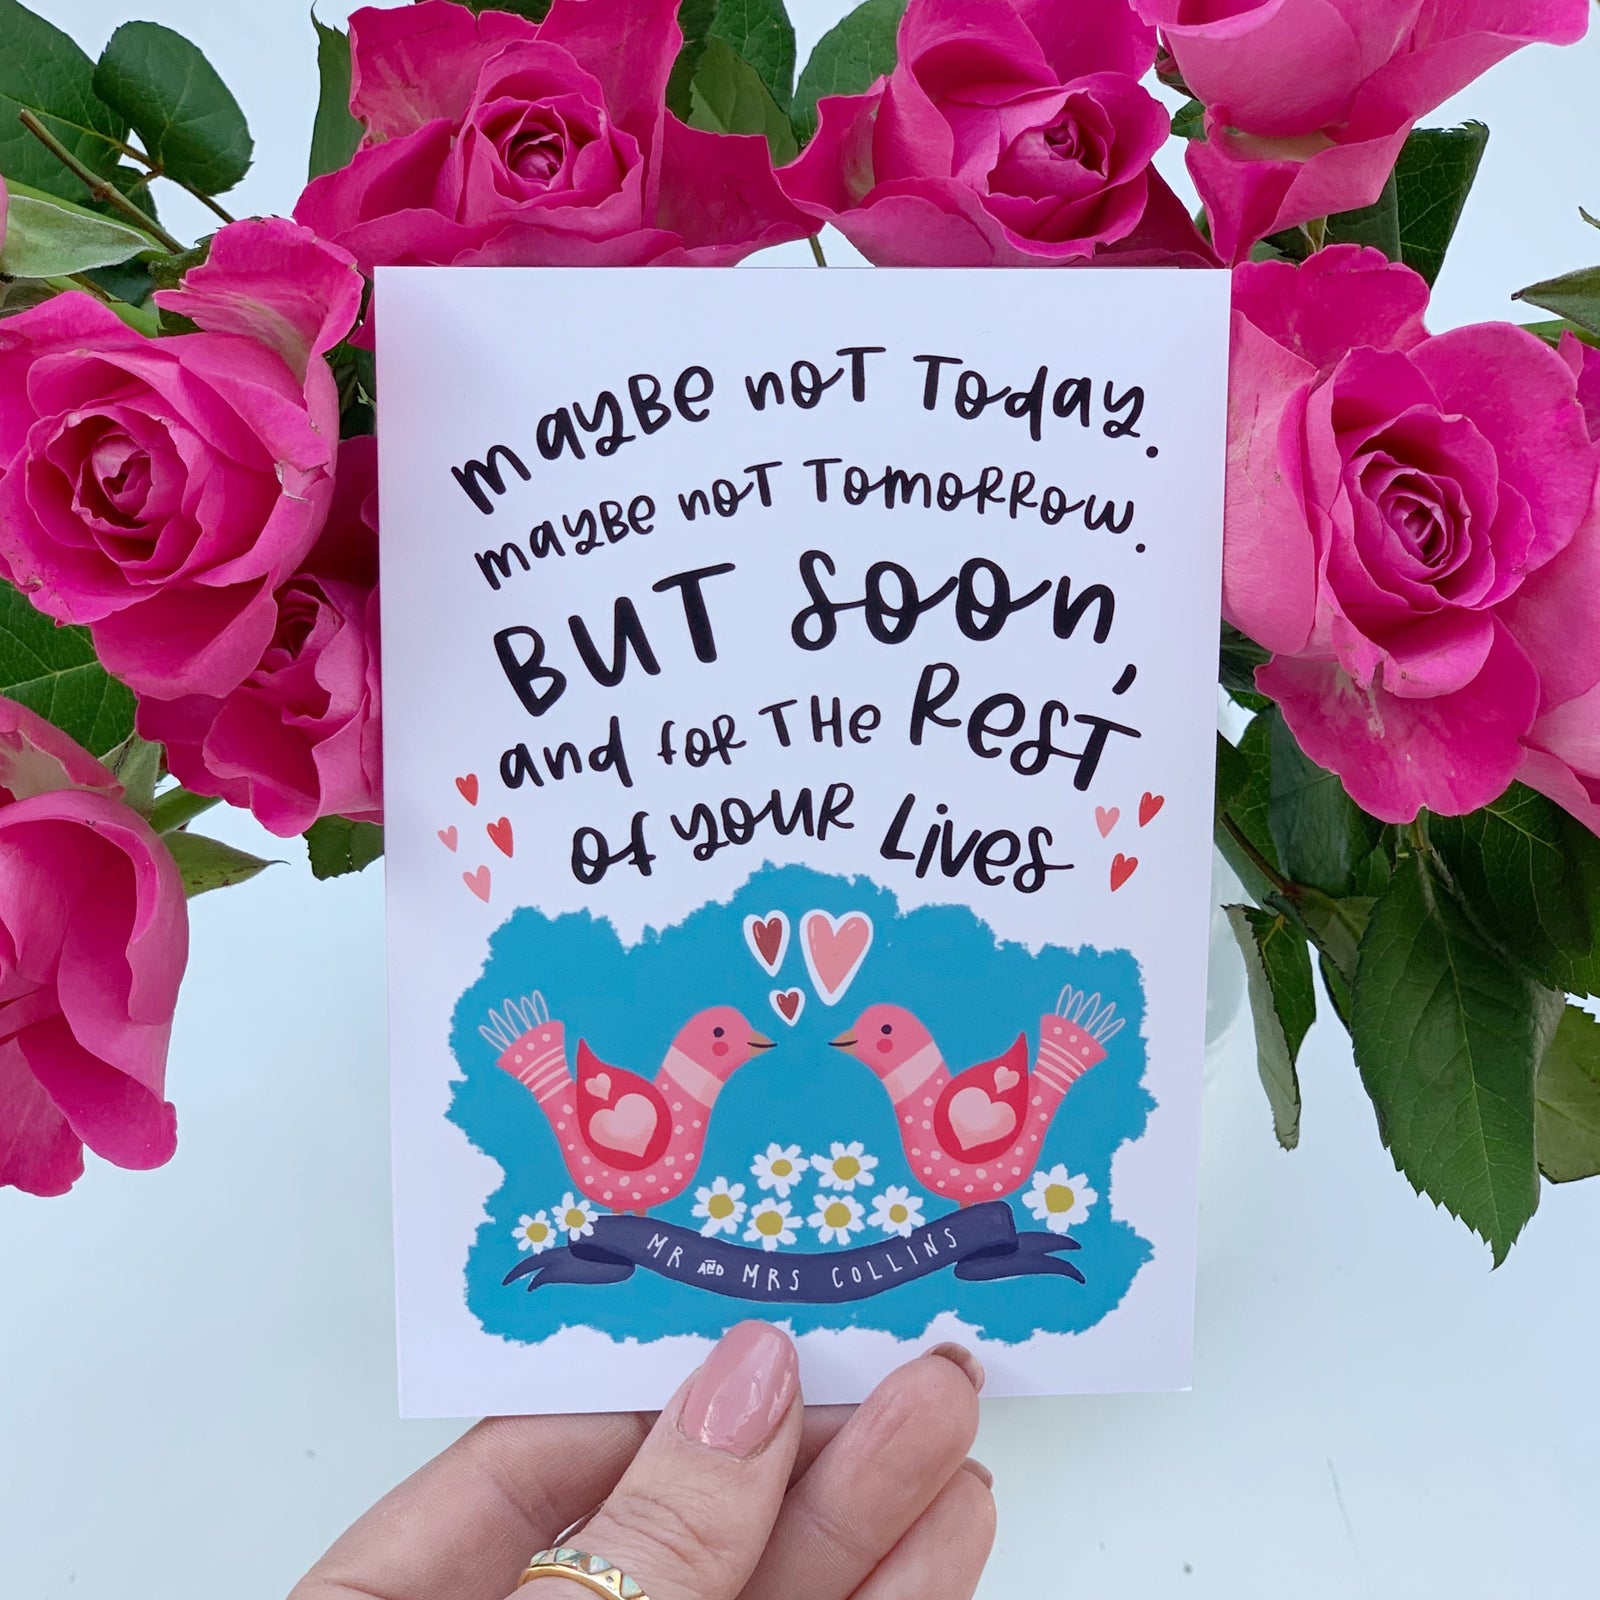 maybe not Today.
maybe not Tomorrow.
BUT soon,
and for The Rest
of your Lives
MR AND MRS COLLINS